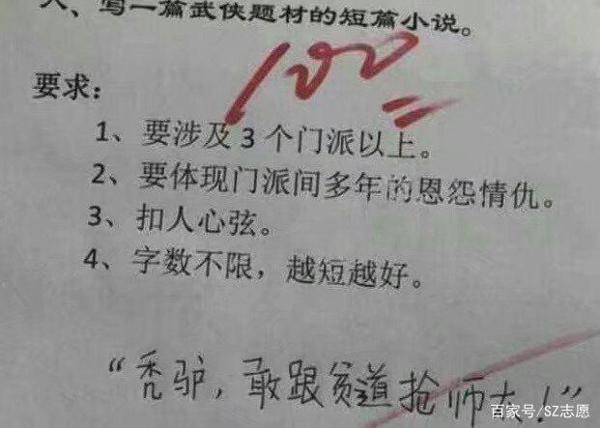 八、写一篇武侠题材的短篇小说。
100
要求：
1、要涉及3个门派以上。
2、要体现门派间多年的恩怨情仇。
3、扣人心弦。
4、字数不限，越短越好。
“秃驴，敢跟贫道抢师太！”
百家号/SZ志愿